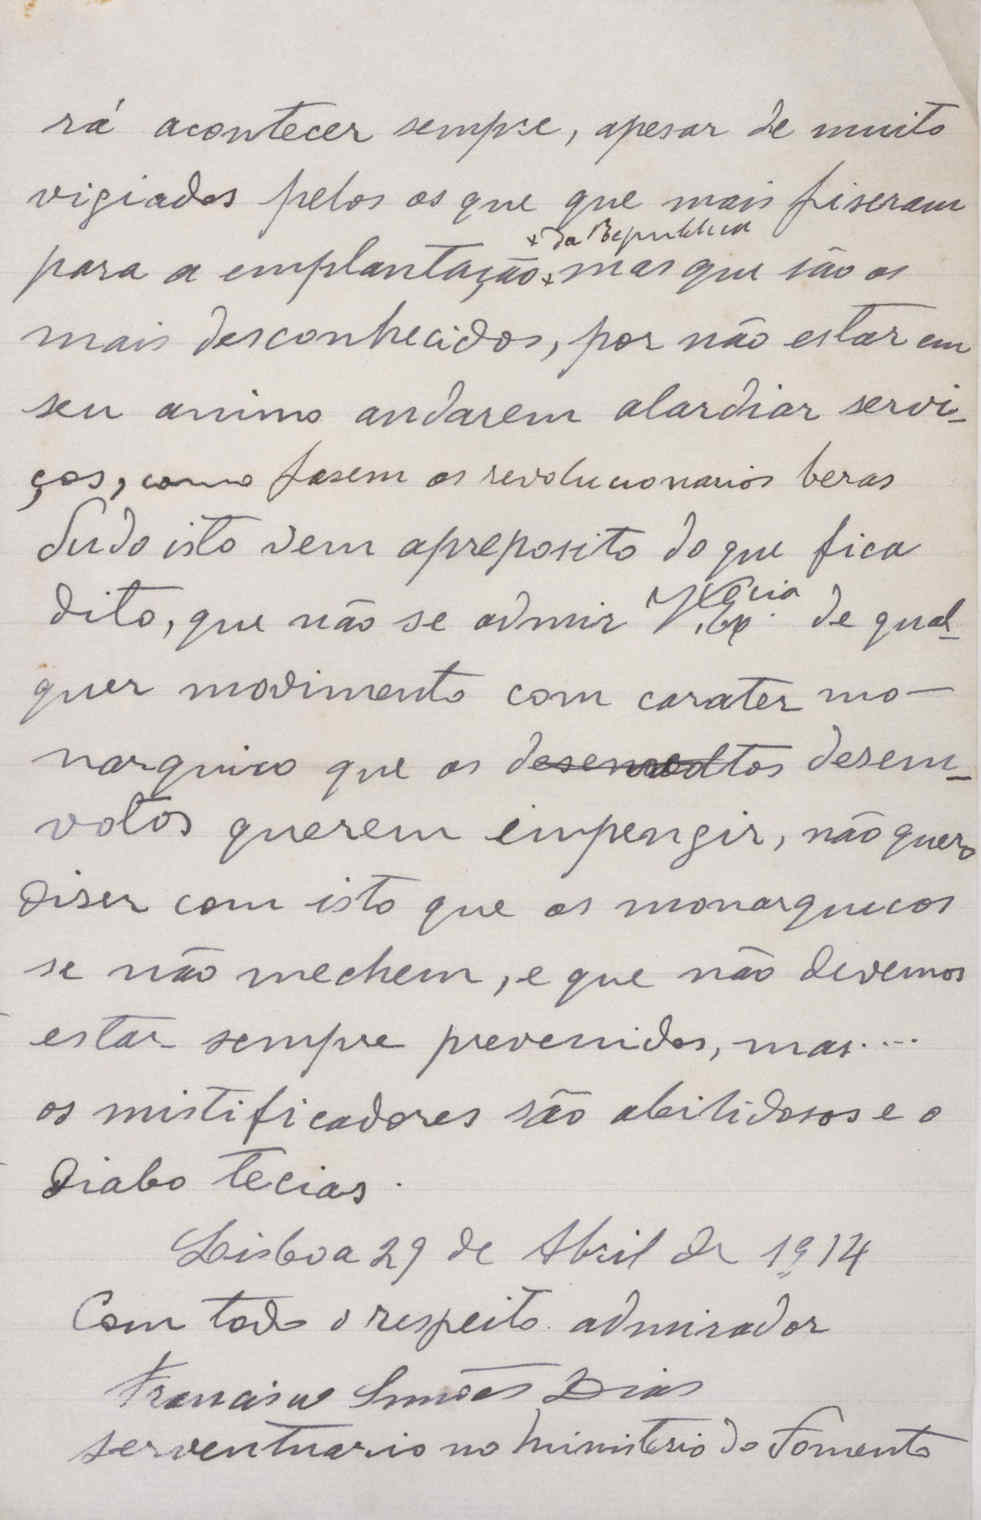 rá acontecer sempre, apesar de muito
vigiados pelos os que que mais fiseram
* da Republica
para a emplantação * mas que são os
mais desconhecidos, por não estar em
seu animo andarem alardiar servi-
ços, como fasem os revolucionarios beras
Tudo isto vem apreposito do que fica
dito, que não se admir V. Ex.cia de qual-
quer movimento com carater mo-
narquico que os desenvoltos desem-
votos querem impengir, não quero
diser com isto que os monarquicos
se não mechem, e que não devemos
estar sempre prevenidos, mas....
os mistificadores são abilidosos e o
Diabo tecias.
Lisboa 29 de Abril de 1914
Com todo o respeito admirador
Francisco Simões Dias
serventuario no Ministerio do Fomento